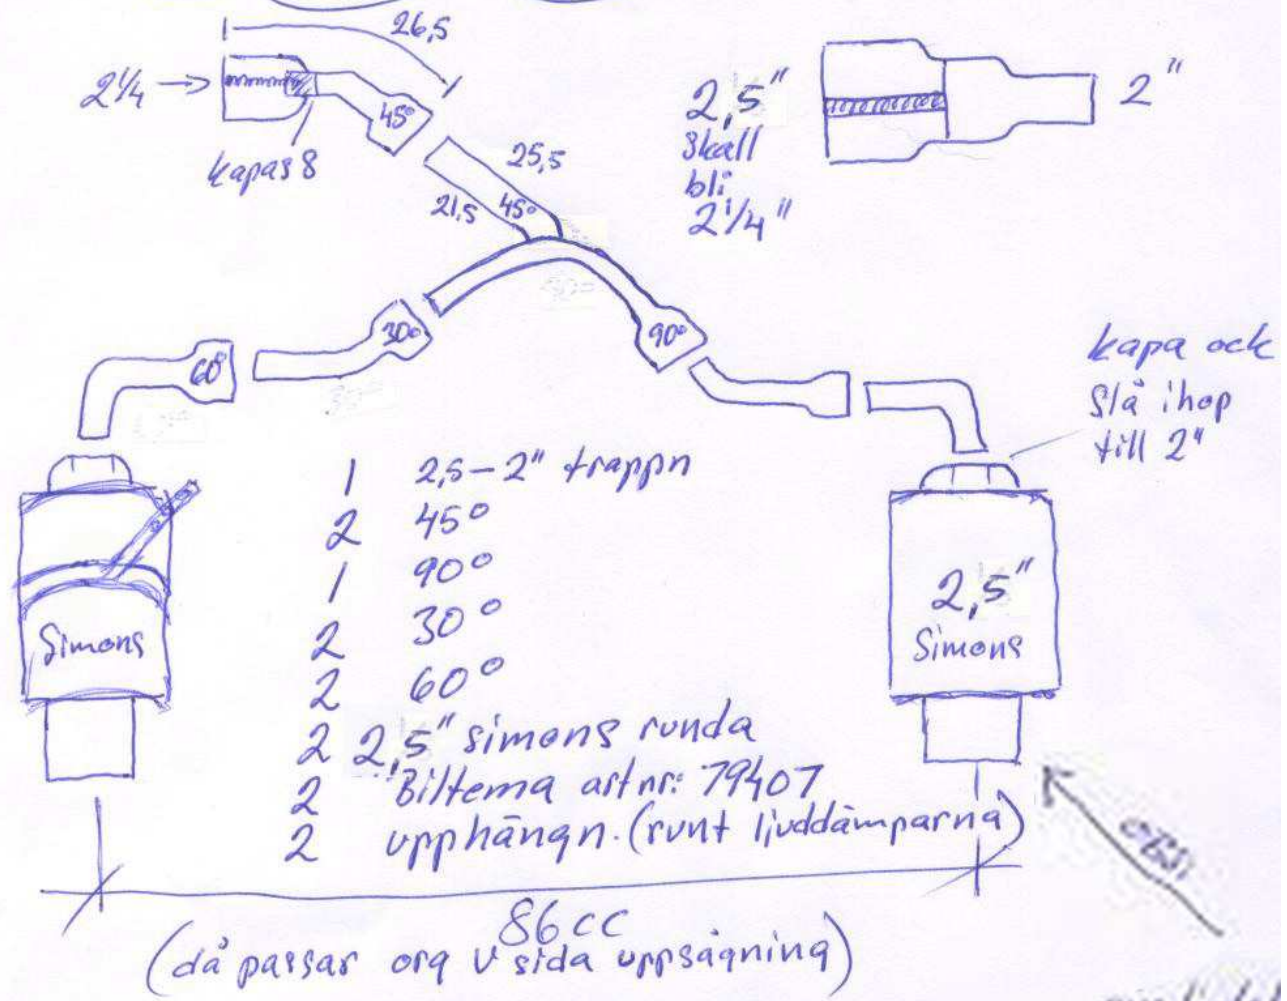 26,5
2 1/4 →
45°
kapas 8
25,5
21,5
45°
2,5"
Skall
bli
2 1/4"
2"
60°
30°
90°
kapa ock
Slå ihop
till 2"
1 2,5-2" trappn
2 45°
1 90°
2 30°
2 60°
2 2,5" simons runda
2 Biltema art nr: 79407
2 upphängn. (runt ljuddämparna)
Simons
2,5"
Simons
86 CC
(då passar org V sida uppsågning)